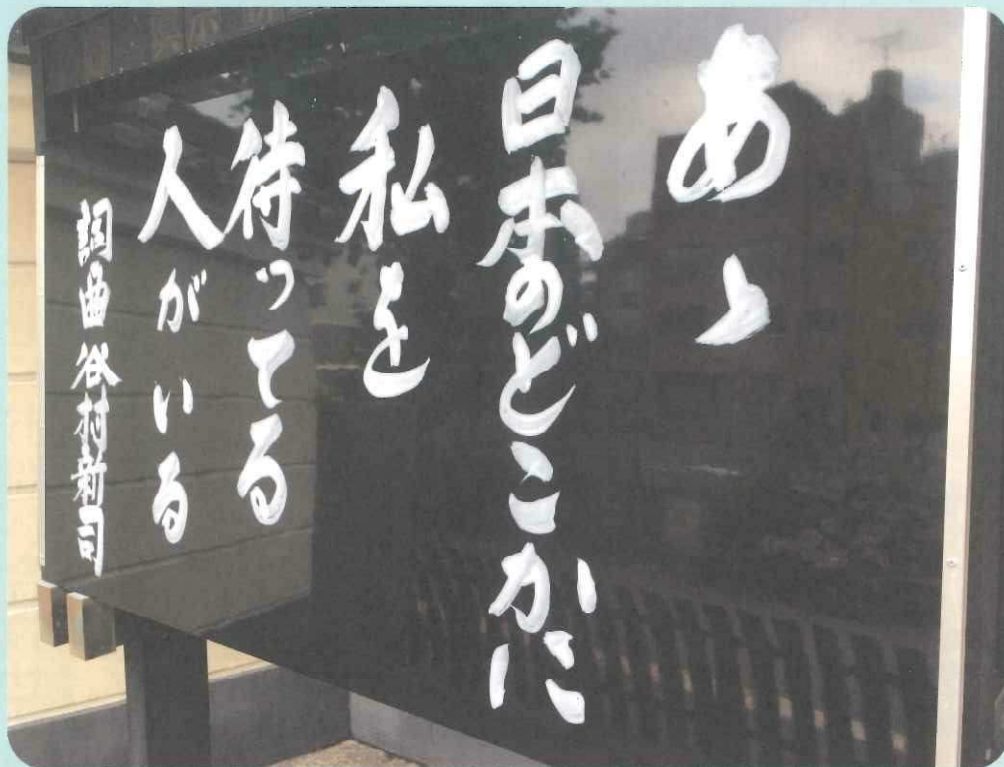 あゝ
日本のどこかに
私を
待ってる
人がいる
詞曲谷村新司